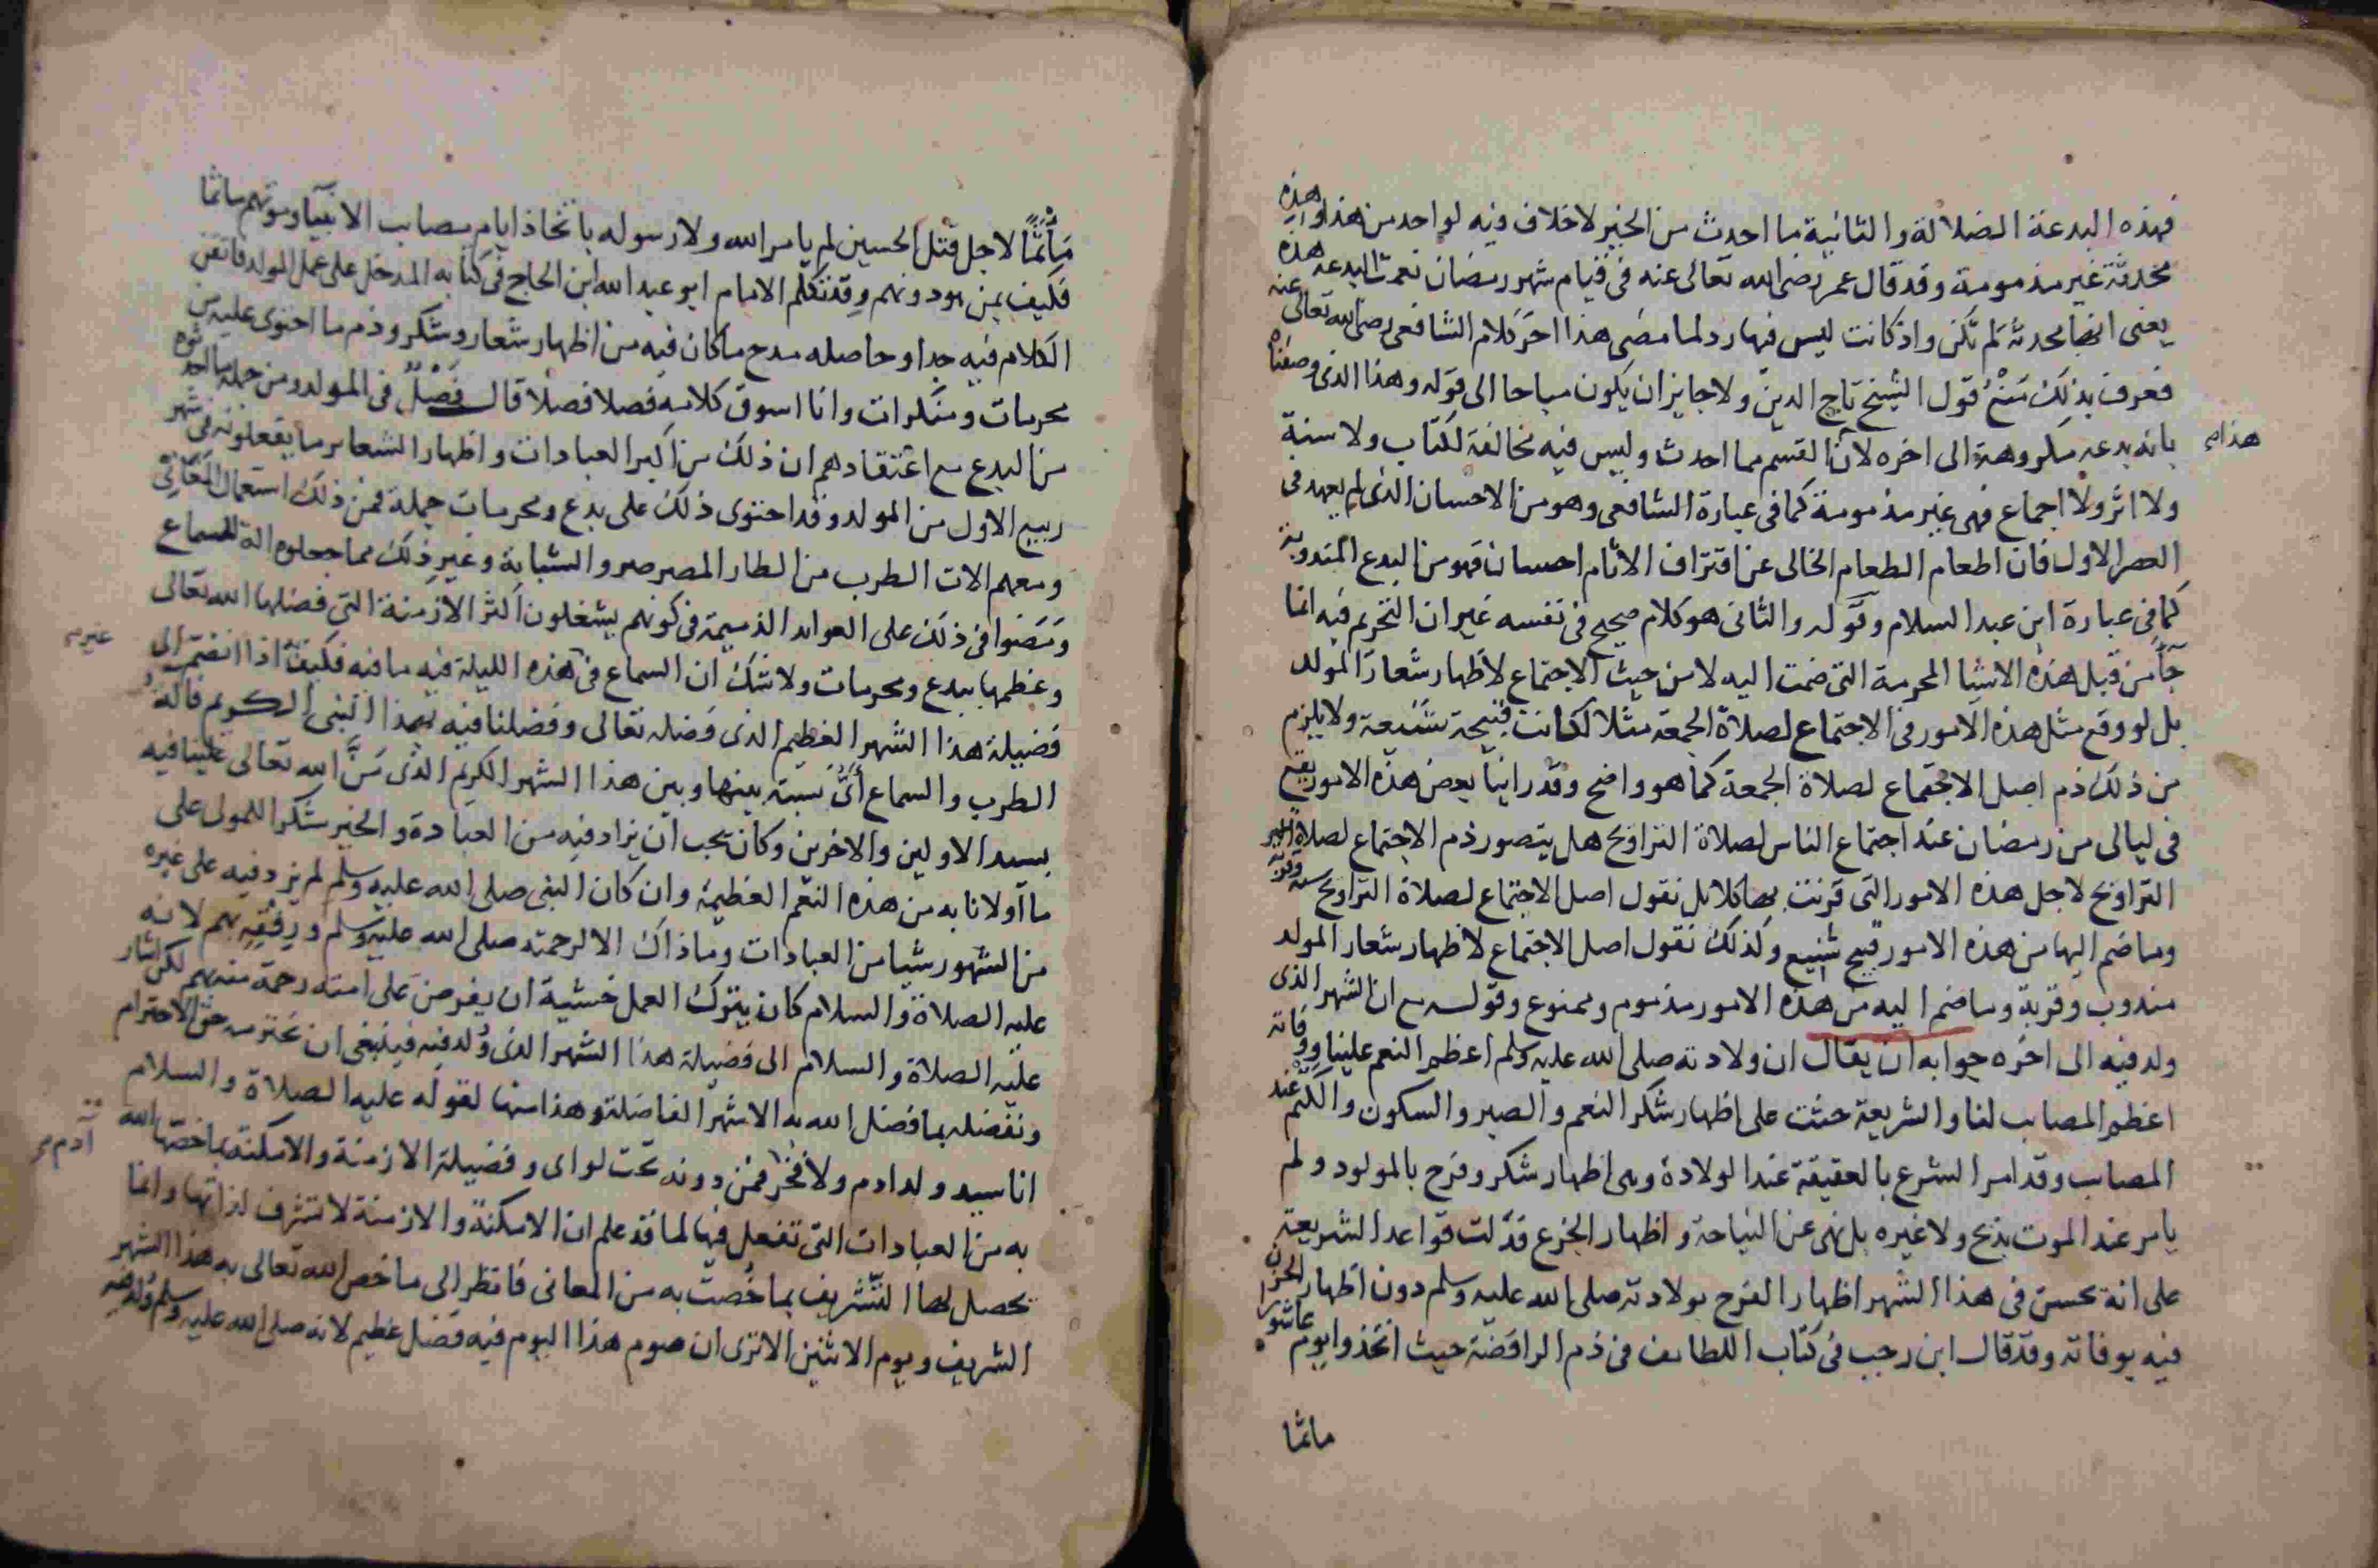 فهذه البدعة الضلالة والثانية ما احدث من الخير لا خلاف فيه لواحد من هذا وهذه
محدثة غير مذمومة وقد قال عمر رضى الله تعالى عنه فى قيام شهر رمضان نعمت البدعة هذه
يعنى انها محدثة لم تكن واذ كانت ليس فيها رد لما مضى هذا اخر كلام الشافعى رضى الله تعالى عنه
فعرف بذلك منع قول الشيخ تاج الدين ولا جايز ان يكون مباحا الى قوله وهذا الذى وصفناه
بانه بدعه مكروهة الى اخره لان القسم مما احدث وليس فيه مخالفة لكتاب ولا سنة
هذا
ولا اثر ولا اجماع فهى غير مذمومة كما فى عبارة الشافعى وهو من الاحسان الذى لم يعهد فى
العصر الاول فان اطعام الطعام الخالى عن اقتراف الاثام احسان فهو من البدع المندوبة
كما فى عبارة ابن عبد السلام وقوله والثانى هو كلام صحيح فى نفسه غير ان التحريم فيه انما
جآ من قبل هذه الاشيا المحرمة التى ضمت اليه لا من حيث الاجتماع لاظهار شعار المولد
بل لو وقع مثل هذه الامور فى الاجتماع لصلاة الجمعة مثلا لكانت قبيحة شنيعة ولا يلزم
من ذلك ذم اصل الاجتماع لصلاة الجمعة كما هو واضح وقد راينا بعض هذه الامور يقع
فى ليالى من رمضان عند اجتماع الناس لصلاة التراويح هل يتصور ذم الاجتماع لصلاة
التراويح لاجل هذه الامور التى قرنت بها كلا بل نقول اصل الاجتماع لصلاة التراويح سنة وقربة
وما ضم اليها من هذه الامور قبيح شنيع وكذلك نقول اصل الاجتماع لاظهار شعار المولد
مندوب وقربة وما ضم اليه من هذه الامور مذموم وممنوع وقوله مع ان الشهر الذى
ولد فيه الى اخره جوابه ان يقال ان ولادته صلى الله عليه وسلم اعظم النعم علينا ووفاته
اعظم المصايب لنا والشريعة حثت على اظهار شكر النعم والصبر والسكون والكتم عند
المصايب وقد امر الشرع بالعقيقة عند الولادة وهى اظهار شكر وفرح بالمولود ولم
يامر عند الموت بذبح ولا غيره بل نهى عن النياحة واظهار الجزع فدلت قواعد الشريعة
على انه يحسن فى هذا الشهر اظهار الفرح بولادته صلى الله عليه وسلم دون اظهار الحزن
فيه بوفاته وقد قال ابن رجب فى كتاب اللطايف فى ذم الرافضة حيث اتخذوا يوم عاشورا
ماتما
مأتما لاجل قتل الحسين لم يامر الله ولا رسوله باتخاذ ايام مصايب الانبيآ وموتهم ماتما
فكيف بمن هو دونهم وقد تكلم الامام ابو عبد الله ابن الحاج فى كتابه المدخل على عمل المولد فاتقن
الكلام فيه جدا وحاصله مدح ما كان فيه من اظهار شعار وشكر وذم ما احتوى عليه من
محرمات ومنكرات وانا اسوق كلامه فصلا فصلا قال فصل فى المولد ومن جملة ما احدثوه
من البدع مع اعتقادهم ان ذلك من اكبر العبادات واظهار الشعاير ما يفعلونه فى شهر
ربيع الاول من المولد وقد احتوى ذلك على بدع ومحرمات جملة فمن ذلك استعمال المغانى
ومعهم الات الطرب من الطار المصرصر والشبابة وغير ذلك مما جعلوه الة للسماع
ومضوا فى ذلك على العوايد الذميمة فى كونهم يشغلون اكثر الازمنة التى فضلها الله تعالى
وعظمها ببدع ومحرمات ولا شك ان السماع فى هذه الليلة فيه ما فيه فكيف اذا انضم الى
غيره
فضيلة هذا الشهر العظيم الذى فضله تعالى وفضلنا فيه بهذا النبى الكريم فالة
الطرب والسماع أىّ نسبة بينها وبين هذا الشهر الكريم الذى منّ الله تعالى علينا فيه
بسيد الاولين والاخرين وكان يجب ان يزاد فيه من العبادة والخير شكرا للمولى على
ما آولانا به من هذه النعم العظيمة وان كان النبى صلى الله عليه وسلم لم يزد فيه على غيره
من الشهور شيا من العبادات وما ذاك الا لرحمته صلى الله عليه وسلم ورفقه بهم لانه
عليه الصلاة والسلام كان يترك العمل خشية ان يفرض على امته رحمة منه بهم لكن اشار
عليه الصلاة والسلام الى فضيلة هذا الشهر الذى وُلد فيه فينبغى ان نحترمه حق الاحترام
ونفضله بما فضل الله به الاشهر الفاضلة وهذا منها لقوله عليه الصلاة والسلام
انا سيد ولد ادم ولا فخر فمن دونه تحت لواى وفضيلة الازمنة والامكنة بما خصها الله
آدم
به من العبادات التى تفعل فيها لما قد علم ان الامكنة والازمنة لا تتشرف لذاتها وانما
يحصل لها التشريف بما خُصت به من المعانى فانظر الى ما خص الله تعالى به هذا الشهر
الشريف ويوم الاثنين الا ترى ان صوم هذا اليوم فيه فضل عظيم لانه صلى الله عليه وسلم وُلد فيه